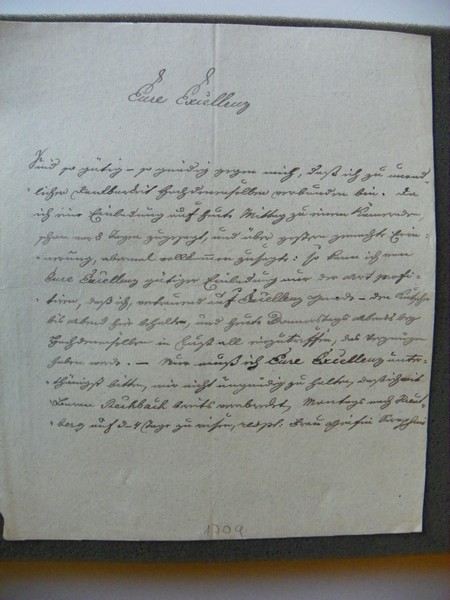 Eure Excellenz
Sind so gütig – so gnädig gegen mich, daß ich zu unend-
licher Dankbarkeit Hochdenenselben verbunden bin. Da
ich eine Einladung auf heute Mittag zu einem
schon vor 8 Tagen zugesagt, und über gestern gemachte Erin-
nerung, abermal vollkommen zusagte: so kann ich von
Eure Excellenz gütiger Einladung nur der Art profi-
tiren, daß ich, vertrauend auf Excellenz Gnade – den
bis Abend hier behalten, und heute Donnerstags Abends bey
Hochdenenselben in einzutreffen, das Vergnügen
haben werde. – Nur muß ich Eure Excellenz unter-
thänigst bitten, mir nicht ungnädig zu halten, daß ich mit
Rechbach bereits verabredet, Montags nach
berg auf 3–4 Tage zu reisen, resp. Frau Gräfin
1709